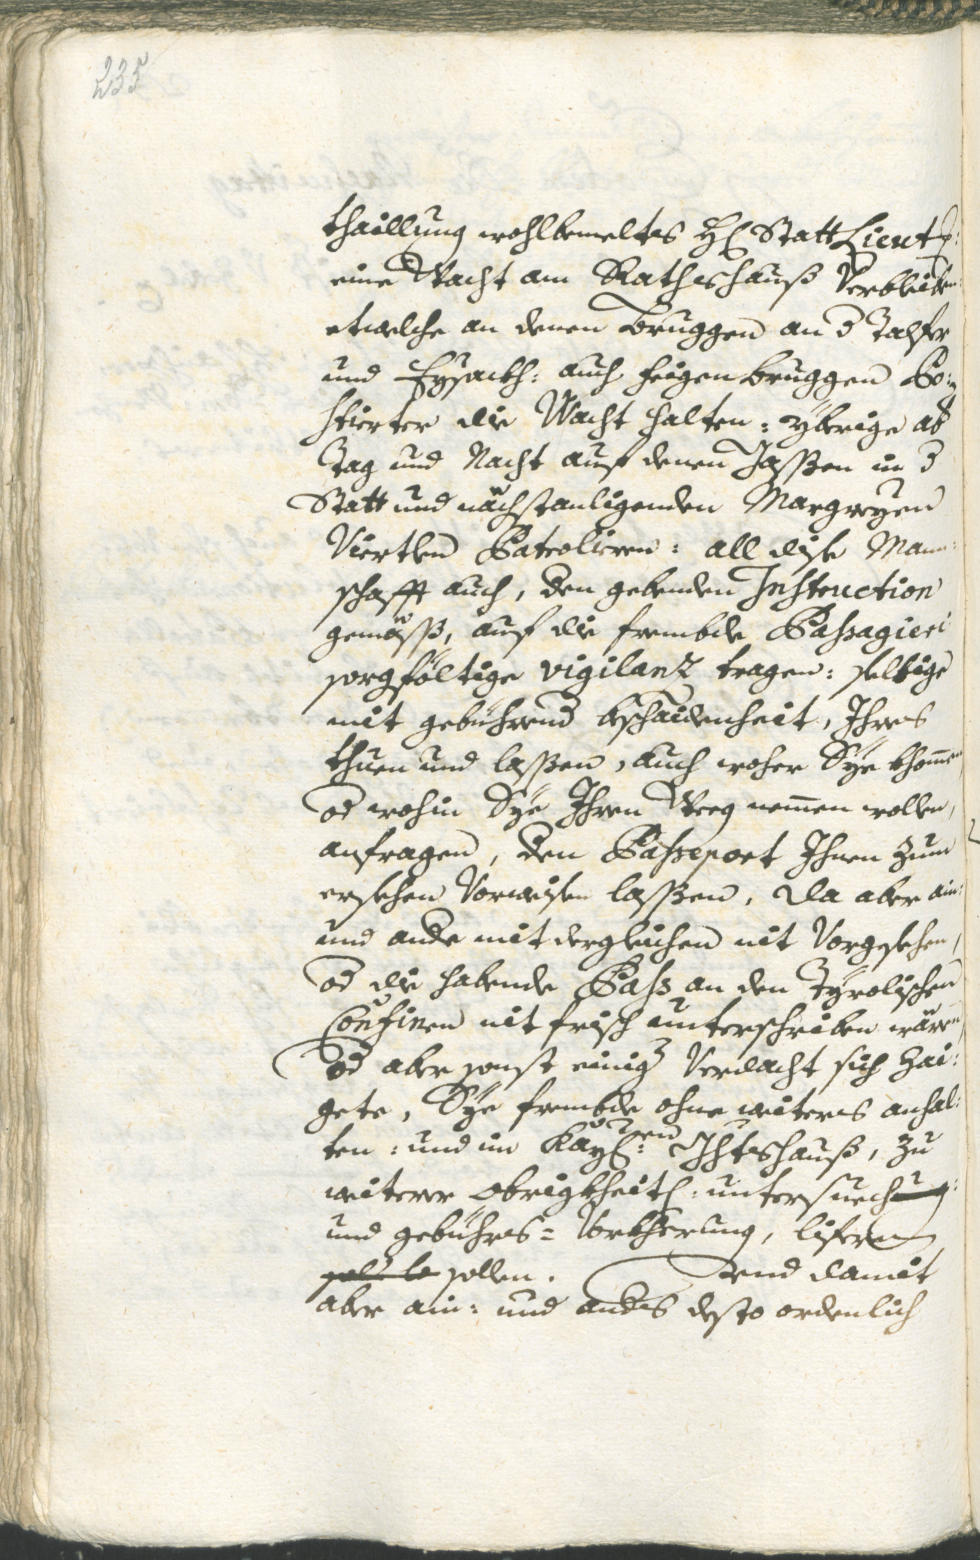 235
thaillung wohlbemeltes H. Statt Lieut:
eine Wacht am Rathshauß Verbleiben
etwelche an denen bruggen an d Talfer
und Eysackh: auch heigen bruggen Po:
stierter die Wacht halten: ybrige ab
Tag und Nacht auf denen Gassen in d
Statt und nächstanligenden Margreyen
Viertlen Patrolieren: all dise Mann:
schafft auch, den gebenden Instruction
gemäß, auf die frembde Passagieri
sorgföltige vigilanz tragen: selbige
mit gebührend bschaidenheit, Ihres
thuen und lassen, auch woher Sye khomen
od wohin Sye Ihren Weeg nemmen wollen,
anfragen, den Passeport Ihnen zum
ersehen Vorweisen lassen, da aber ain:
und ander mit dergleichen nit Vorgesehen,
od die habende Pass an den Tyrolischen
Confinen nit frisch unterschriben wären
od aber sonst einig Verdacht sich zai:
gete, Sye frembde ohne weiters anhal:
ten: und im Kays:en Ihtshauß, zu
weiterer obrigkheitl: untersuechung:
und gebührs= Vorkherung, lifern
sollen. und damit
aber ain: und anders desto ordenlich